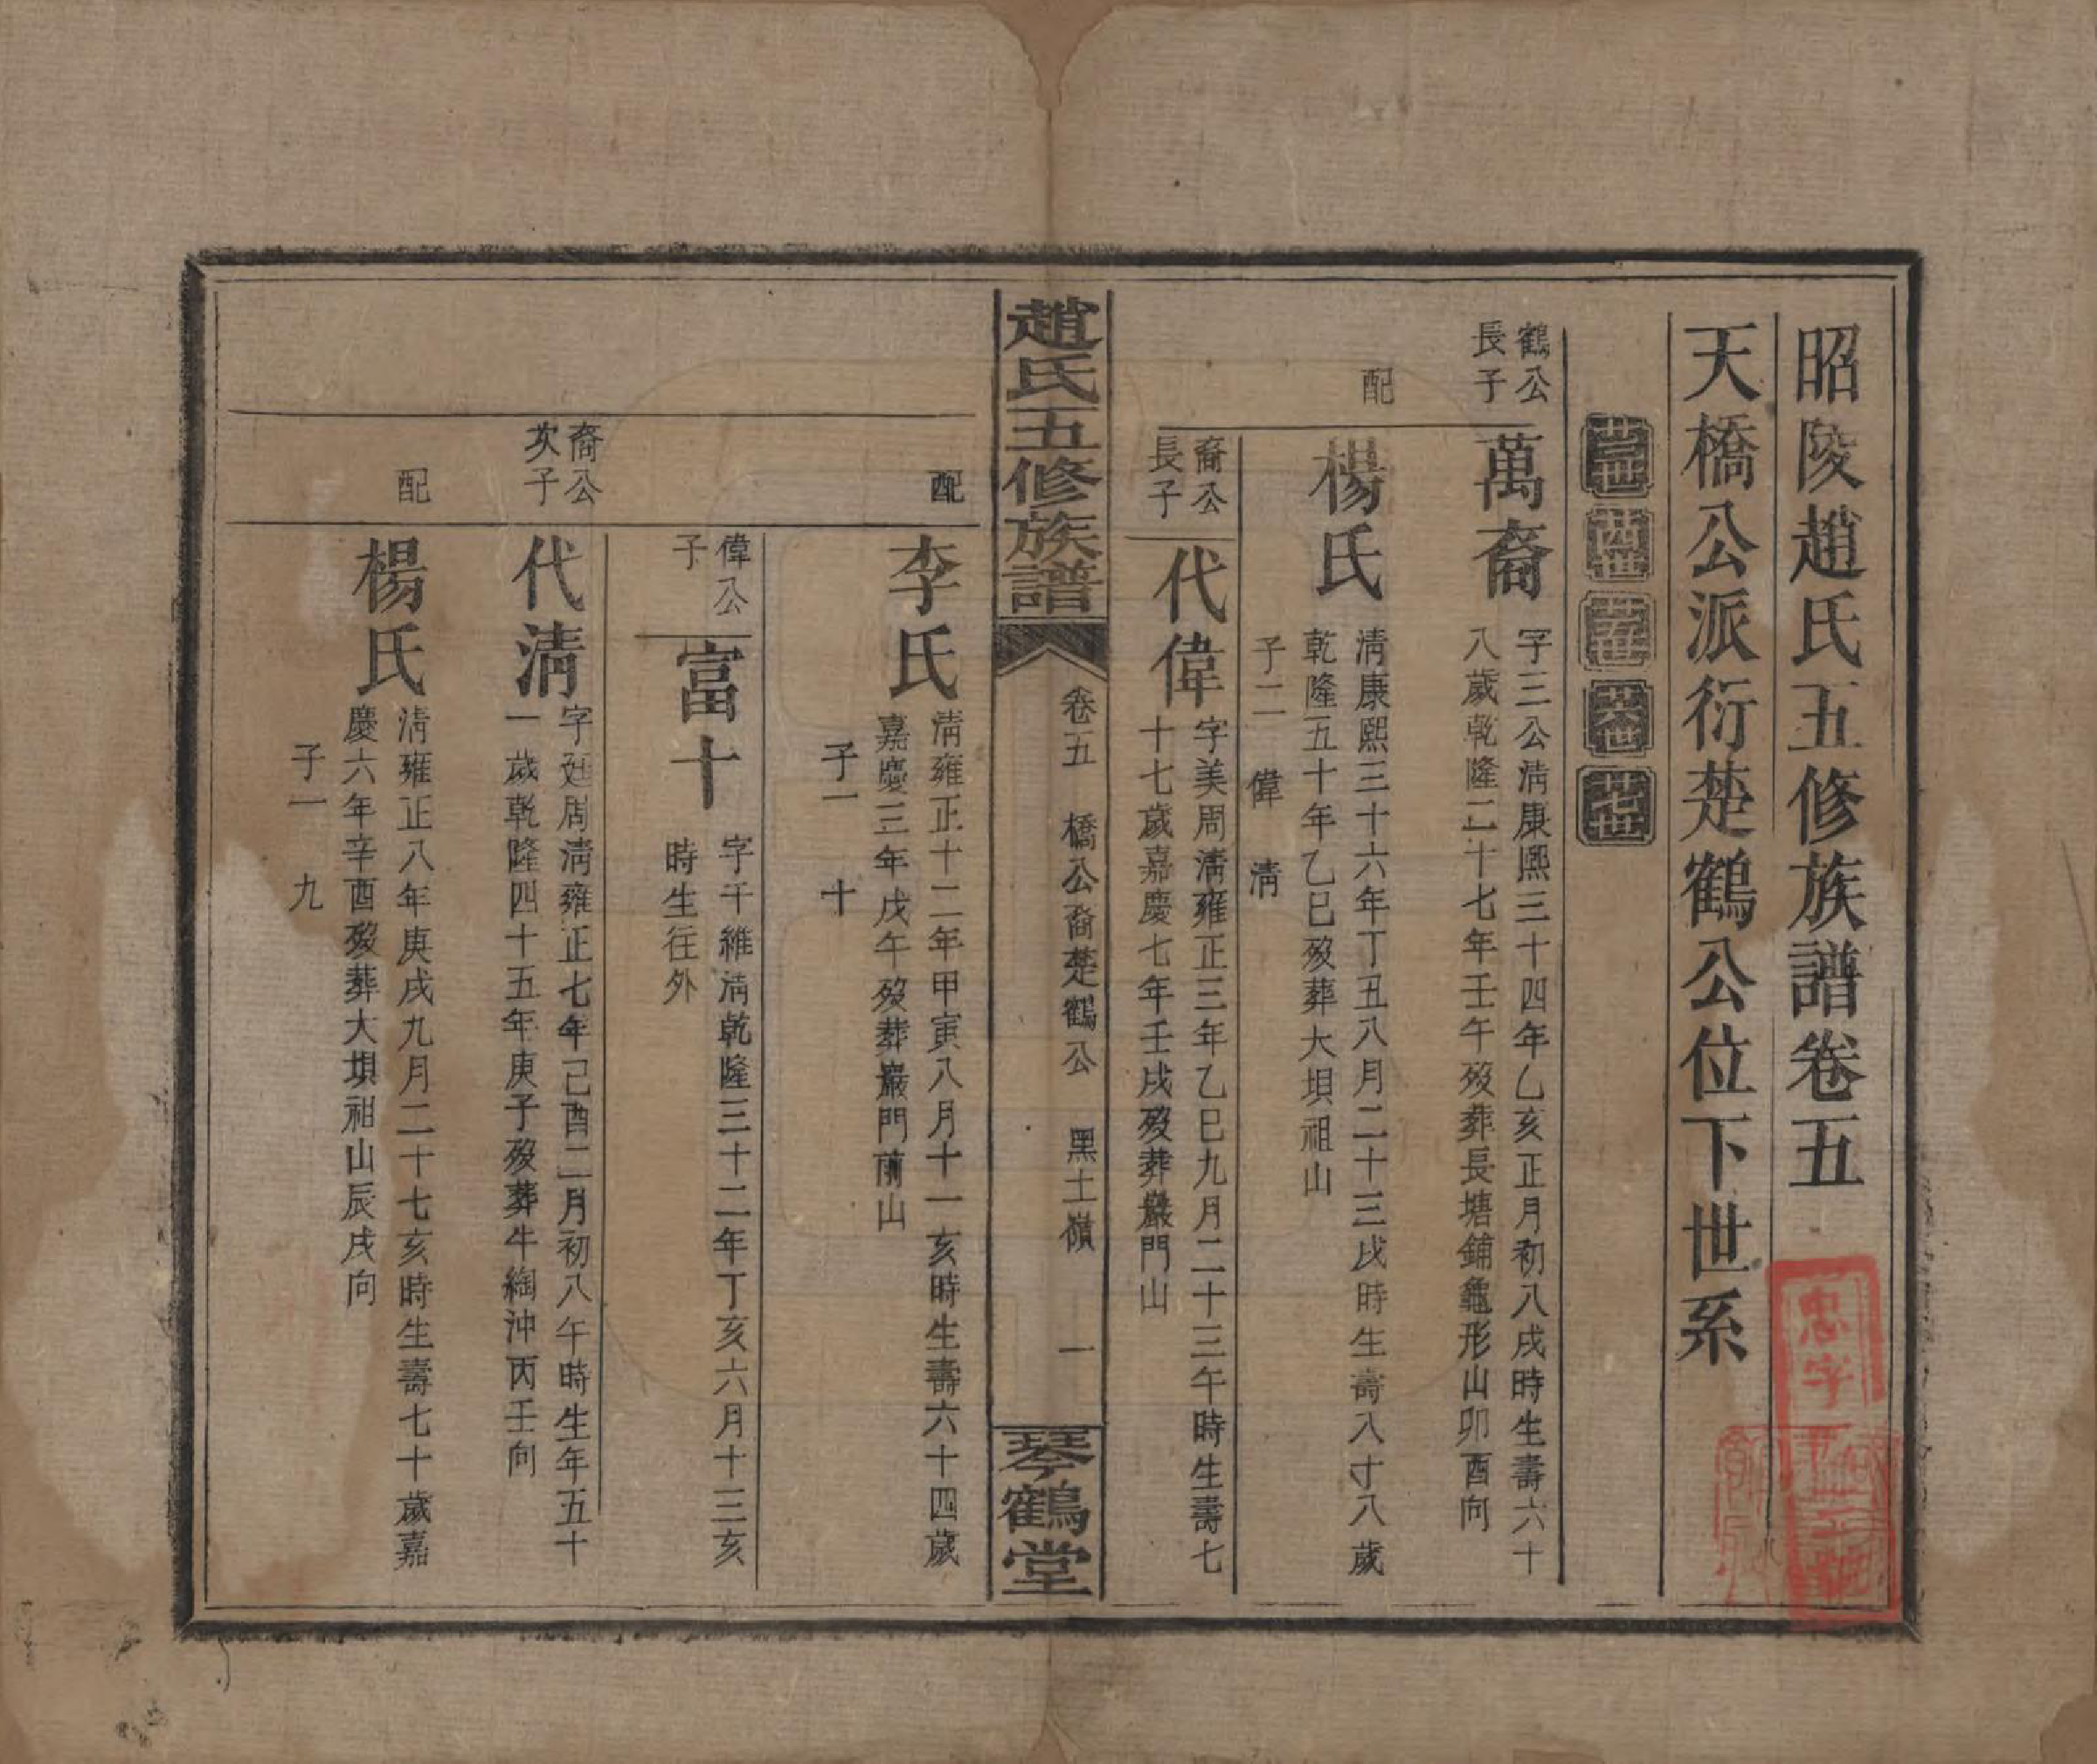 昭陵趙氏五修族譜卷五
天橋公派衍楚鶴公位下世系
廿三世 廿四世 廿五世 廿六世 廿七世
鶴公
長子
萬裔
字三公淸康熙三十四年乙亥正月初八戌時生壽六十
八歲乾隆二十七年壬午歿葬長塘鋪龜形山卯酉向
配
楊氏
淸康熙三十六年丁丑八月二十三戌時生壽八十八歲
乾隆五十年乙巳歿葬大垻祖山
子二 偉 淸
裔公
長子
代偉
字美周淸雍正三年乙巳九月二十三午時生壽七
十七歲嘉慶七年壬戌歿葬巖門山
趙氏五修族譜
卷五 橋公裔楚鶴公 黑土嶺 一
琴鶴堂
配
李氏
淸雍正十二年甲寅八月十一亥時生壽六十四歲
嘉慶三年戊午歿葬巖門前山
子一 十
偉公
子
富十
字千維淸乾隆三十二年丁亥六月十三亥
時生往外
裔公
次子
代淸
字廷周淸雍正七年己酉二月初八午時生年五十
一歲乾隆四十五年庚子歿葬牛綯沖丙壬向
配
楊氏
淸雍正八年庚戌九月二十七亥時生壽七十歲嘉
慶六年辛酉歿葬大垻祖山辰戌向
子一 九
忠字